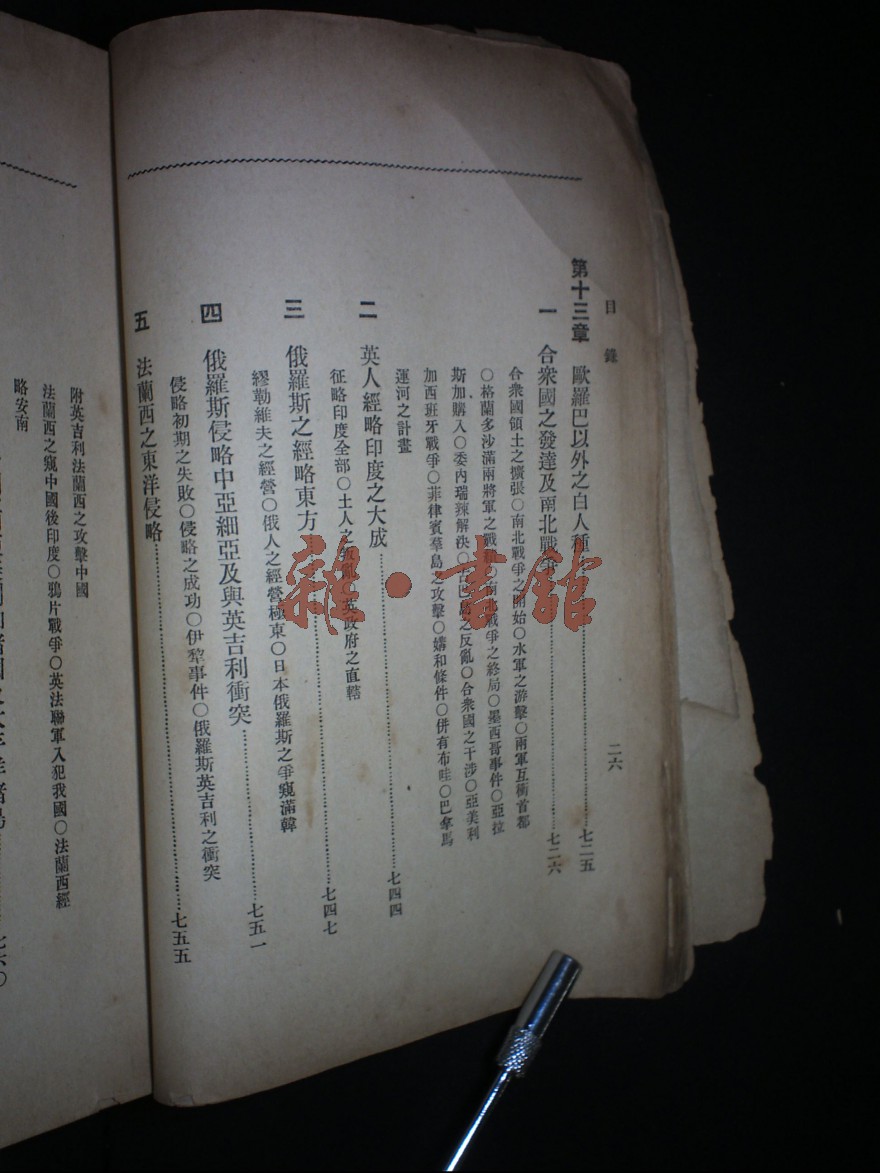 目錄
二六
第十三章 歐羅巴以外之白人種……七二五
一 合衆國之發達及南北戰爭……七二六
合衆國領土之擴張〇南北戰爭之開始〇水軍之游擊〇兩軍互衝首都
〇格蘭多沙滿兩將軍之戰〇南北戰爭之終局〇墨西哥事件〇亞拉
斯加購入〇委內瑞辣解決〇古巴島之反亂〇合衆國之干涉〇亞美利
加西班牙戰爭〇菲律賓羣島之攻擊〇媾和條件〇併有布哇〇巴拿馬
運河之計畫
二 英人經略印度之大成……七四四
征略印度全部〇土人之亂〇英政府之直轄
三 俄羅斯之經略東方……七四七
繆勒維夫之經營〇俄人之經營極東〇日本俄羅斯之爭窺滿韓
四 俄羅斯侵略中亞細亞及與英吉利衝突……七五一
侵略初期之失敗〇侵略之成功〇伊犂事件〇俄羅斯英吉利之衝突
五 法蘭西之東洋侵略……七五五
附英吉利法蘭西之攻擊中國
法蘭西之窺中國後印度〇鴉片戰爭〇英法聯軍入犯我國〇法蘭西經
略安南
七六〇
雜·書館